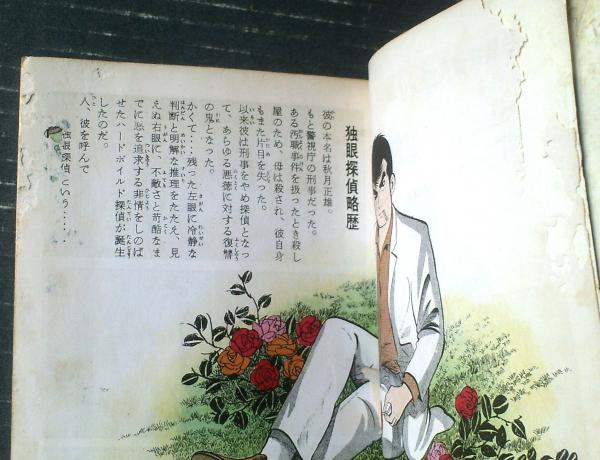 独眼探偵略歴
彼の本名は秋月正雄。
もと警視庁の刑事だった。
ある汚職事件を扱ったとき殺し
屋のため、母は殺され、彼自身
もまた片目を失った。
以来彼は刑事をやめ探偵となっ
て、あらゆる悪徳に対する復讐
の鬼となった。
かくて‥‥残った左眼に冷静な
判断と明解な推理をたたえ、見
えぬ右眼に、不敵さと苛酷なま
でに悪を追求する非情をしのば
せたハードボイルド探偵が誕生
したのだ。
人、彼を呼んで
独眼探偵という‥‥‥